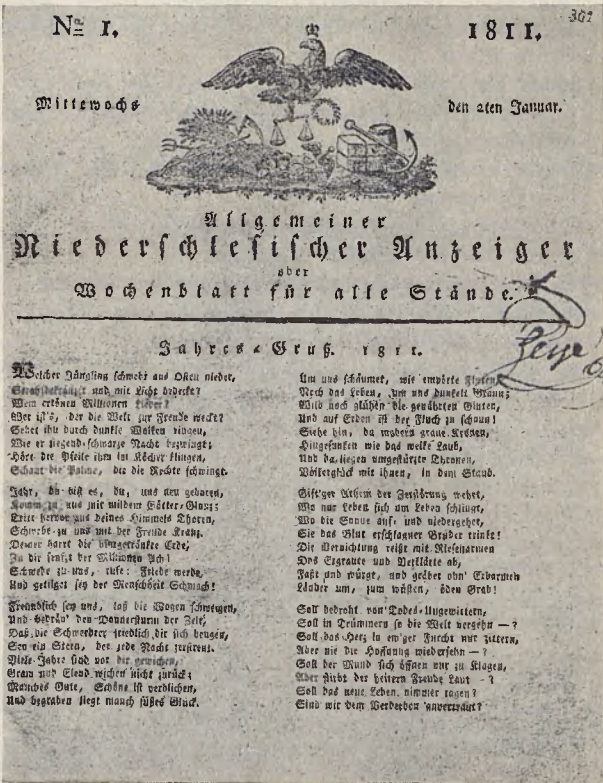 No 1.
1811.
361
Mittewochs
den 2ten Januar.
Allgemeiner
Niederschlesischer Anzeiger
oder
Wochenblatt für alle Stände.
Jahres-Gruß. 1811.
Welcher Jüngling schwebt aus Osten nieder,
Strahlbekränzt und mit Licht bedeckt?
Wem ertönen Millionen Lieder?
Wer ist's, der die Welt zur Freude weckt?
Sehet ihn durch dunkle Wolken ringen,
Wie er siegend schwarze Nacht bezwingt;
Hört die Pfeile ihm im Köcher klingen,
Schaut die Palme, die die Rechte schwingt.
Jahr, du bist es, du, uns neu geboren,
Komm zu uns mit mildem Götter-Glanz;
Tritt hervor aus deines Himmels Thoren,
Schwebe zu uns mit der Freude Kranz.
Deiner harrt die blutgetränkte Erde,
Zu dir seufzt der Millionen Ach!
Schwebe zu uns, rufe: Friede werde,
Und getilget sey der Menschheit Schmach!
Freundlich sey uns, laß die Wogen schweigen,
Und bedräu' den Donnersturm der Zeit,
Daß die Schwerdter friedlich dir sich beugen,
Sey ein Stern, der jede Nacht zerstreut.
Viele Jahre sind vor dir gewichen,
Grau und Elend wichen nicht zurück;
Manches Gute, Schöne ist verblichen,
Und begraben liegt manch süßes Glück.
Um uns schäumet, wie empörte Fluten,
Noch das Leben, um uns dunkelt Graun;
Wild noch glühen die genährten Gluten,
Und auf Erden ist der Fluch zu schaun!
Siehe hin, da modern graue Kronen,
Hingesunken wie das welke Laub,
Und da liegen umgestürzte Thronen,
Völkerglück mit ihnen, in dem Staub.
Gift'ger Athem der Zerstörung wehet,
Wo nur Leben sich um Leben schlingt,
Wo die Sonne auf- und niedergehet,
Sie das Blut erschlagner Brüder trinkt!
Die Vernichtung reißt mit Riesenarmen
Das Ergraute und Verklärte ab,
Faßt und würgt, und gräbet ohn' Erbarmen
Länder um, zum wüsten, öden Grab!
Soll bedroht von Todes-Ungewittern,
Soll in Trümmern so die Welt vergehn —?
Soll das Herz in ew'ger Furcht nur zittern,
Aber nie die Hoffnung wiedersehn —?
Soll der Mund sich öffnen nur zu Klagen,
Aber stirbt der heitern Freude Laut —?
Soll das neue Leben nimmer tagen?
Sind wir dem Verderben anvertraut?